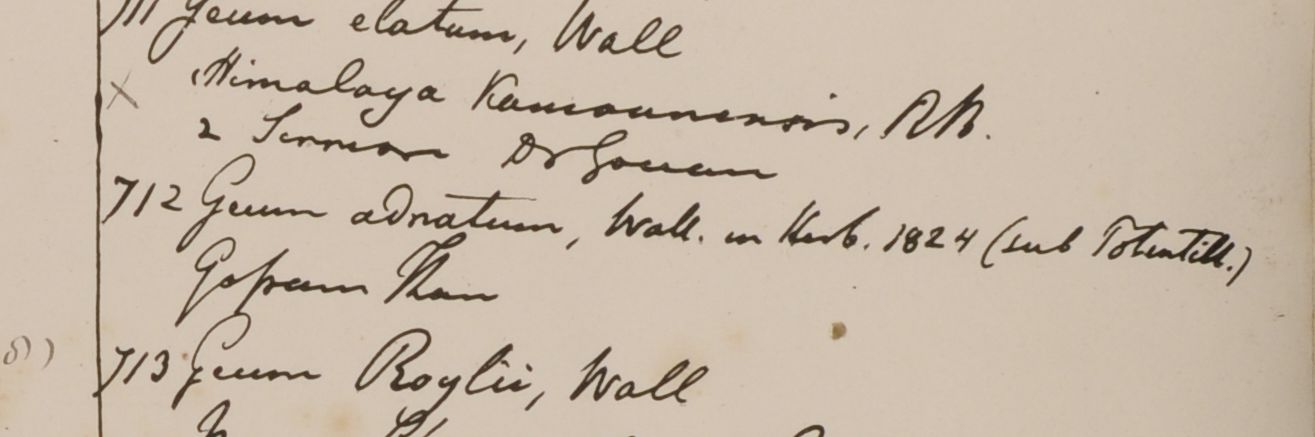 711 Geum elatum, Wall
Himalaya Kamaonensis, R.B.
2 Sirmore Dr Govan
712 Geum adnatum, Wall. in Herb. 1824 (sub Potentill.)
Gossam Than
713 Geum Roylii, Wall